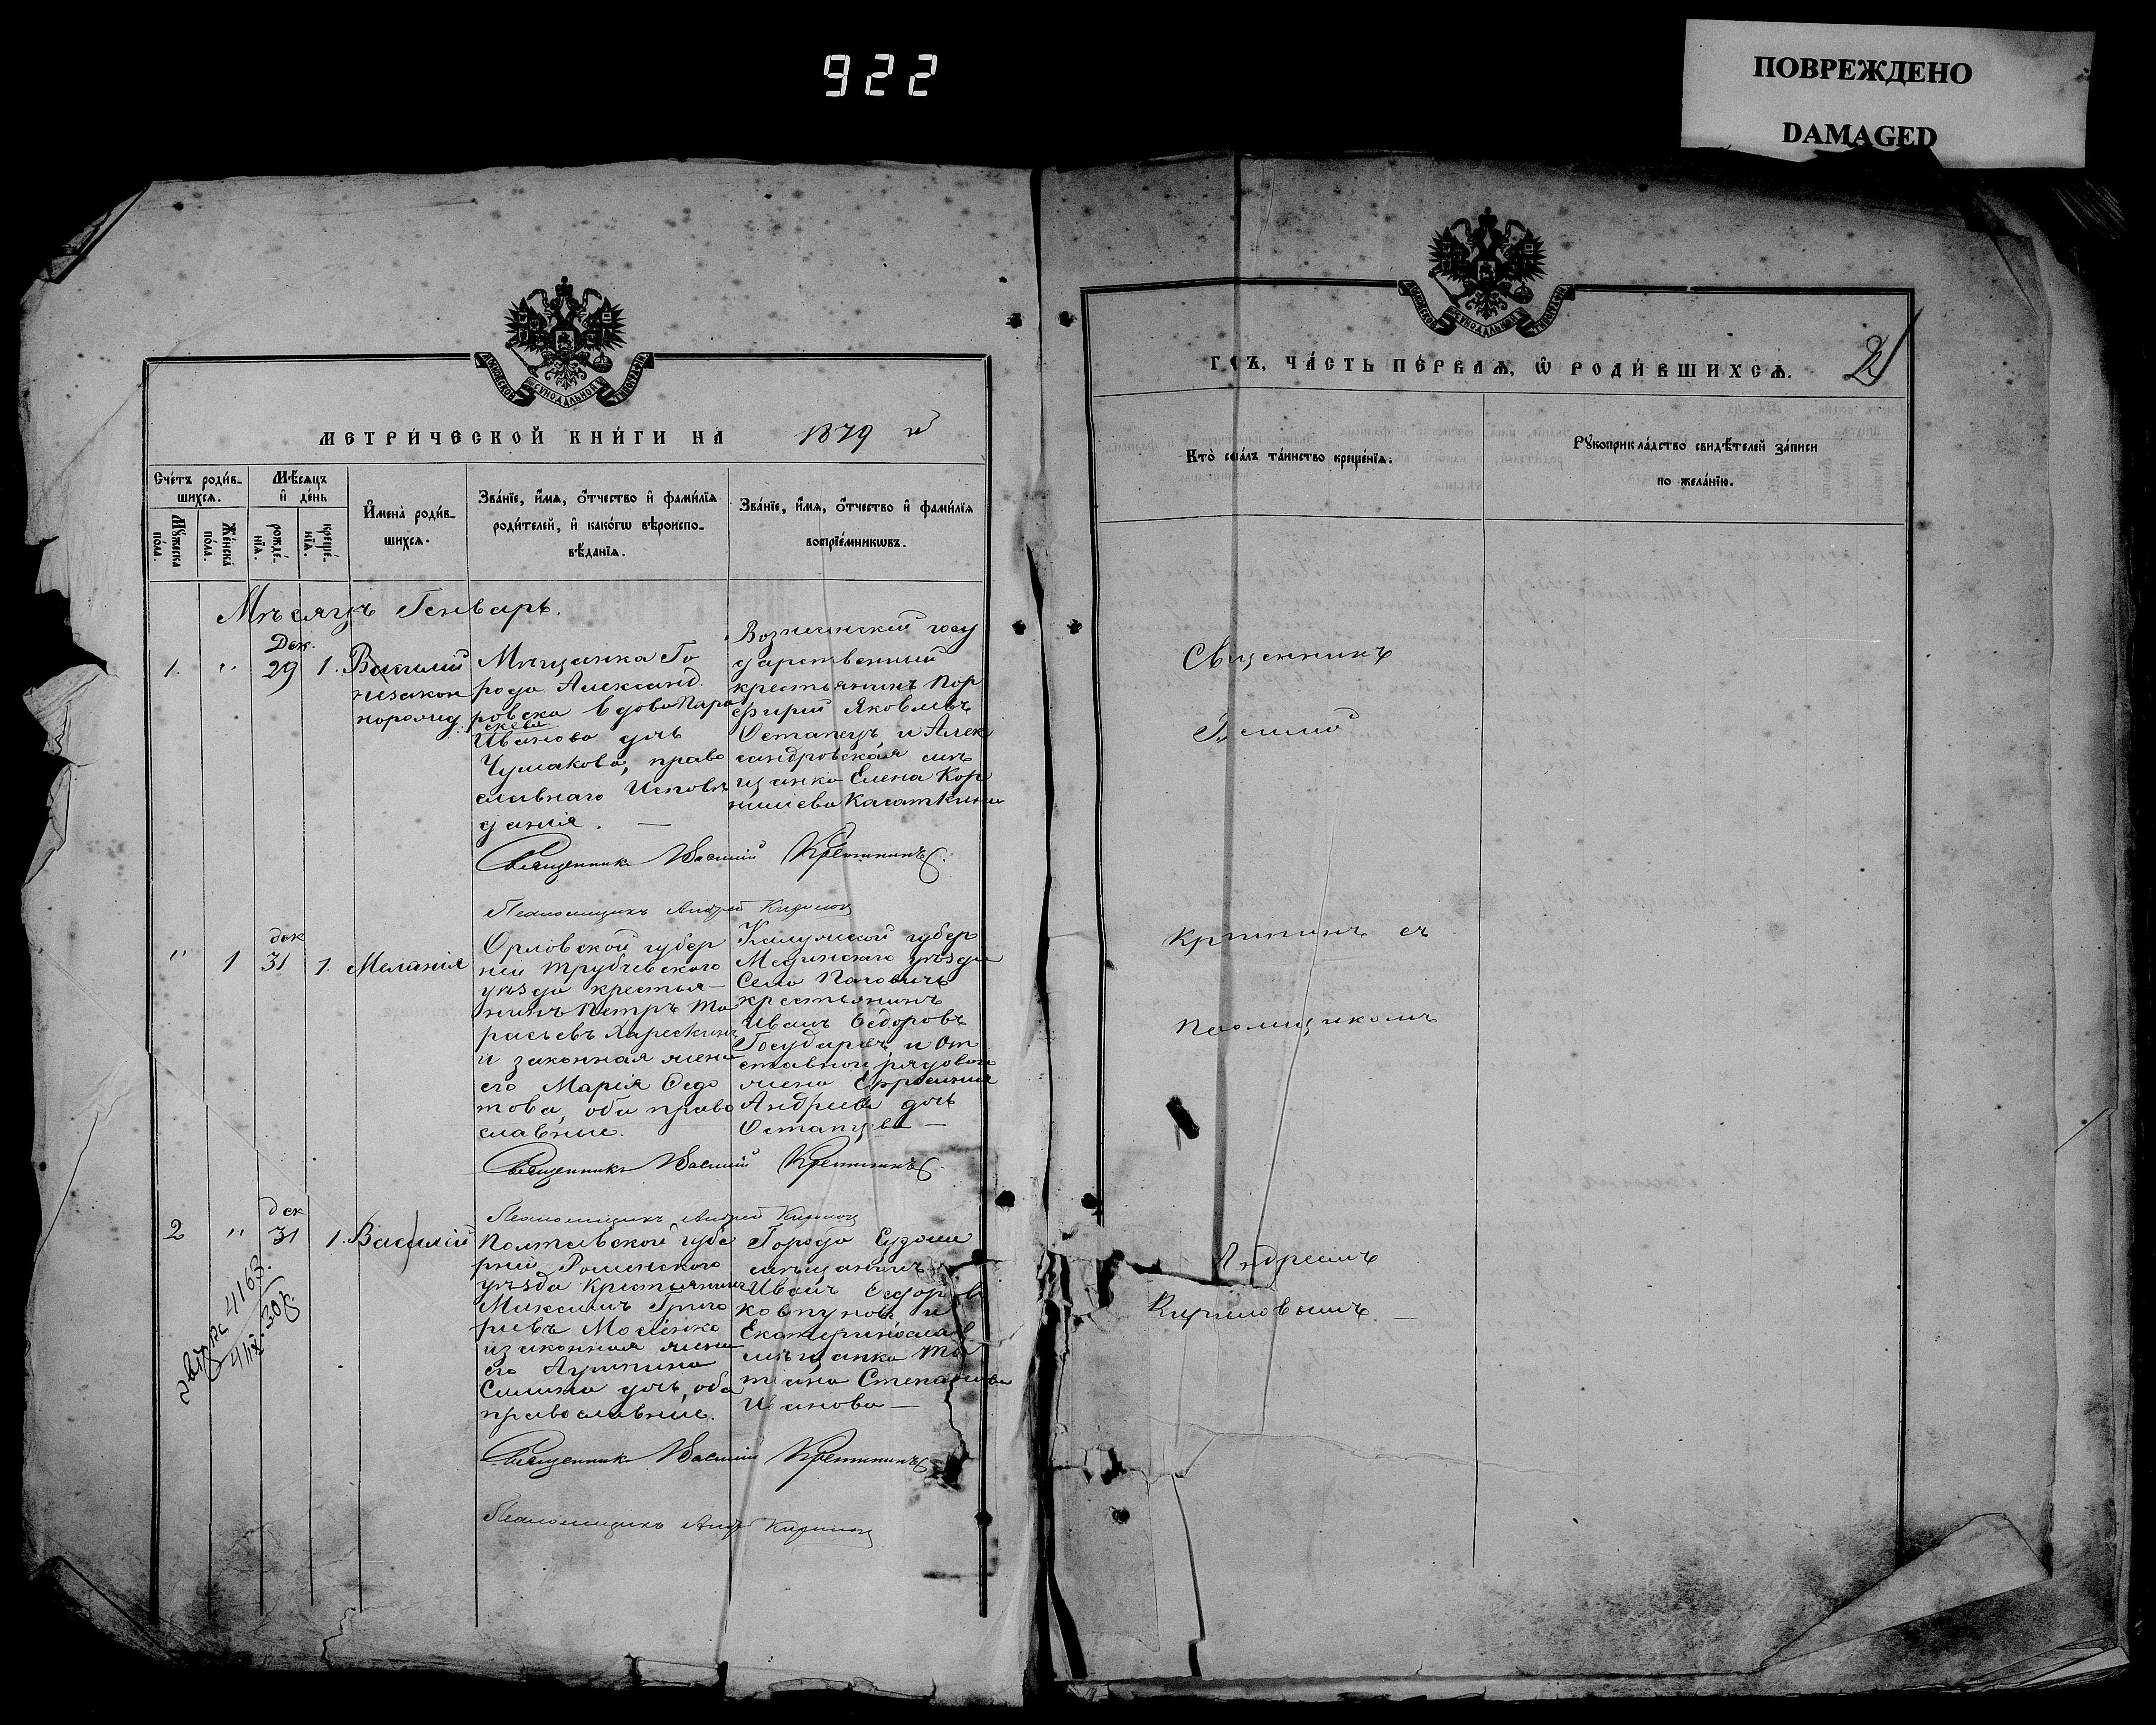 922
ПОВРЕЖДЕНО
DAMAGED
МОСКОВСКОЙ СѴНОДАЛЬНОЙ ТИПОГРАФІИ
МЕТРИ́ЧЕСКОЙ КНИ́ГИ НА 1879 й
Сче́тъ роди́в-
шихсѧ.
Мꙋ́жеска по́ла.
Же́нска по́ла.
Мѣ́сѧцъ
и҆ де́нь
рожде́-
нїѧ.
креще́-
нїѧ.
И҆мена̀ роди́в-
шихсѧ.
Зва́нїе, и҆́мѧ, ѻ҆́тчество и҆ фами́лїѧ
роди́телей, и҆ како́гѡ вѣроиспо-
вѣ́данїѧ.
Зва́нїе, и҆́мѧ, ѻ҆́тчество и҆ фами́лїѧ
воспрїе́мникѡвъ.
Мѣсяцъ Генварь.
1. " Дек. 29 1. Василій
незакон
норожд.
Мѣщанка Го
рода Александ
ровска вдова Пара
скева
Иванова дочь
Чумакова, право
славнаго Исповѣ
данія. —
государственный
крестьянинъ Пор
фирій Яковлевъ
Остапецъ и Алек
сандровская мѣ
щанка Елена Кор
нилiева Касаткина
Священникъ Василій Крепининъ
Псаломщикъ Андрей Кирилов
" 1 дек 31 1. Меланія
Орловской губер
ніи Трубчевского
уѣзда крестья-
нинъ Петръ Та
расьевъ
и законная жена
его Марія Ѳедо
това, оба право
славные.
Калужской губер
Медынскаго уѣзда
Села
крестьянинъ
Иванъ Ѳедоровъ
и От
ставной рядовой
жена Ефросинія
Андреева дочь
Остапцева —
Священникъ Василій Крепининъ
Псаломщикъ Андрей Кирилов
2 " дек 31 1. Василій
Полтавской губе
рніи Роменского
уѣзда Крестьянинъ
Максимъ Григо
ріевъ
и законная жена
его Агрипина
дочь, оба
православные.
Города
мѣщанинъ
Иванъ Ѳедоровъ
и
Екатеринослав
мѣщанка Та
тіана Степанова
Иванова —
4163
Священникъ Василій Крепининъ
Псаломщикъ Андрей Кирилов
МОСКОВСКОЙ СѴНОДАЛЬНОЙ ТИПОГРАФІИ
ГОДЪ, ЧА́СТЬ ПЕ́РВАѦ, Ѽ РОДИ́ВШИХСѦ.
Кто̀ совершалъ та́инство креще́нїѧ.
Рꙋкоприкла́дство свидѣ́телей за́писи
по жела́нїю.
Священникъ
Василій
Крпининъ съ
Псаломщикомъ
Андреемъ
Кириловымъ —